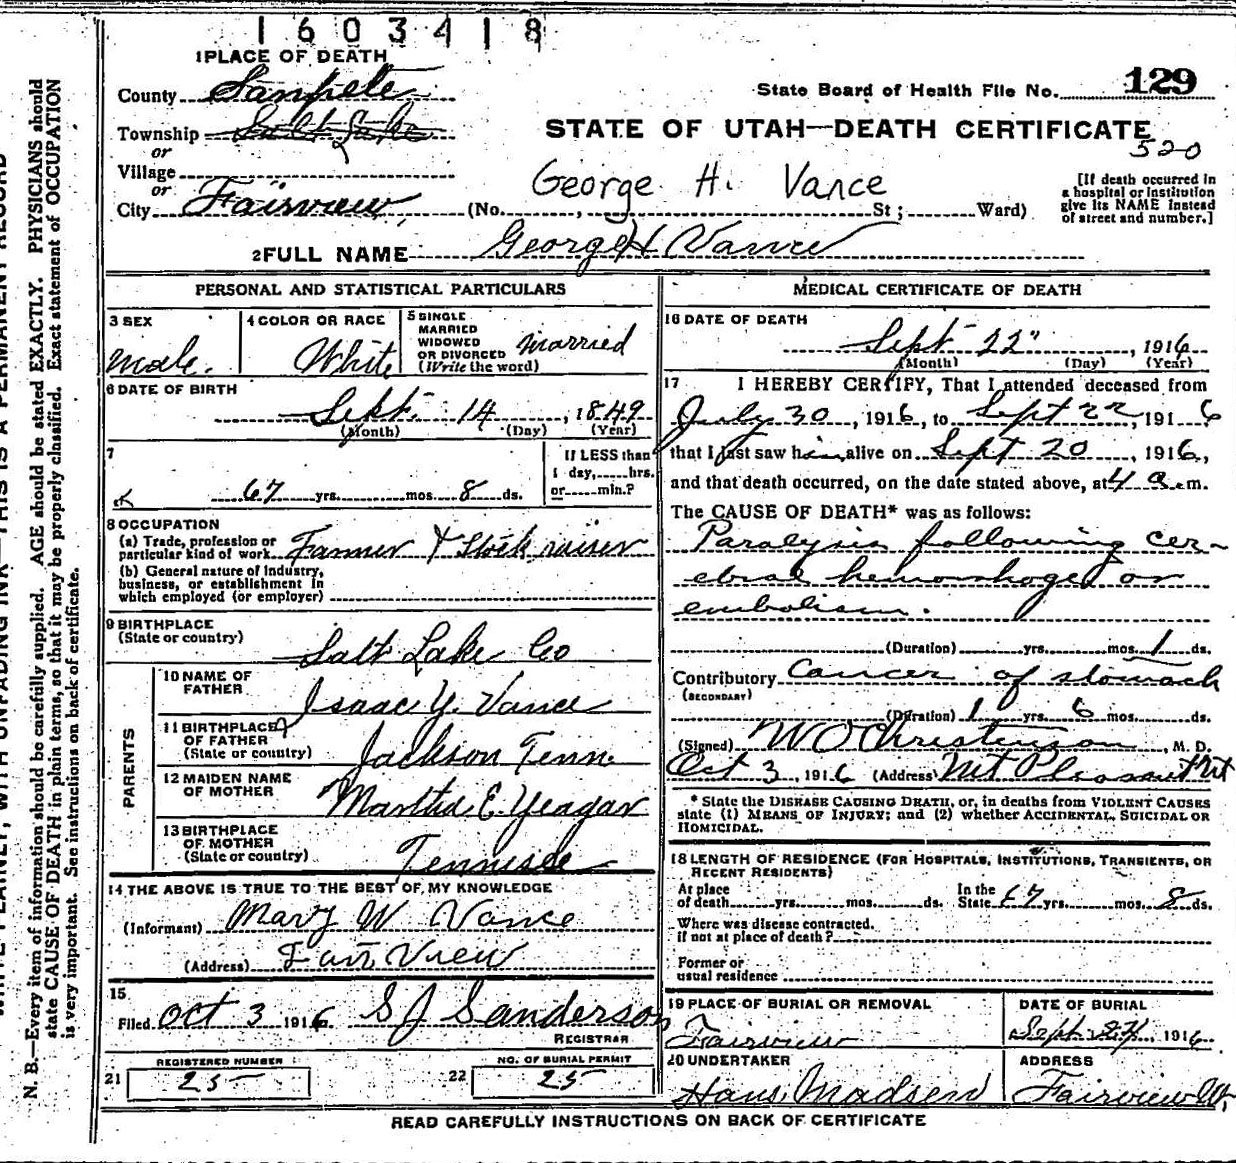 1603418
1 PLACE OF DEATH
County Sanpete
State Board of Health File No. 129
Township Salt Lake
STATE OF UTAH—DEATH CERTIFICATE
520
or
Village
or
City Fairview
George H. Vance
(No. , St ; Ward)
[If death occurred in
a hospital or institution
give its NAME instead
of street and number.]
2 FULL NAME George H Vance
PERSONAL AND STATISTICAL PARTICULARS
3 SEX
Male.
4 COLOR OR RACE
White
5 SINGLE
MARRIED
WIDOWED
OR DIVORCED
(Write the word)
Married
6 DATE OF BIRTH
Sept. 14, 1849
(Month) (Day) (Year)
7
67 yrs. mos. 8 ds.
If LESS than
1 day, hrs.
or min.?
8 OCCUPATION
(a) Trade, profession or
particular kind of work Farmer & Stock raiser
(b) General nature of industry,
business, or establishment in
which employed (or employer)
9 BIRTHPLACE
(State or country)
Salt Lake Co
PARENTS
10 NAME OF
FATHER
Isaac Y. Vance
11 BIRTHPLACE
OF FATHER
(State or country)
Jackson Tenn.
12 MAIDEN NAME
OF MOTHER
Martha E. Yeagar
13 BIRTHPLACE
OF MOTHER
(State or country)
Tennisee
14 THE ABOVE IS TRUE TO THE BEST OF MY KNOWLEDGE
(Informant) Mary W Vance
(Address) Fair View
15
Filed Oct 3 1916 S J Sanderson
REGISTRAR
REGISTERED NUMBER
21 25
NO. OF BURIAL PERMIT
22 25
MEDICAL CERTIFICATE OF DEATH
16 DATE OF DEATH
Sept 22", 1916
(Month) (Day) (Year)
17 I HEREBY CERTIFY, That I attended deceased from
July 30, 1916, to Sept 22, 1916
that I last saw him alive on Sept 20, 1916,
and that death occurred, on the date stated above, at 4 a.m.
The CAUSE OF DEATH* was as follows:
Paralysis following cer-
ebral hemorrhage or
embolism.
(Duration) yrs. mos. 1 ds.
Contributory Cancer of stomach
(SECONDARY)
(Duration) 1 yrs 6 mos. ds.
(Signed) W O Christenson, M. D.
Oct 3, 1916 (Address) Mt Pleasant Ut
* State the DISEASE CAUSING DEATH, or, in deaths from VIOLENT CAUSES
state (1) MEANS OF INJURY; and (2) whether ACCIDENTAL, SUICIDAL OR
HOMICIDAL.
18 LENGTH OF RESIDENCE (FOR HOSPITALS, INSTITUTIONS, TRANSIENTS, OR
RECENT RESIDENTS)
At place
of death yrs. mos. ds.
In the
State 67 yrs. mos. 8 ds.
Where was disease contracted.
if not at place of death?
Former or
usual residence
19 PLACE OF BURIAL OR REMOVAL
Fairview
DATE OF BURIAL
Sept. 24, 1916
20 UNDERTAKER
Hans Madsen
ADDRESS
Fairview Ut,
READ CAREFULLY INSTRUCTIONS ON BACK OF CERTIFICATE
N. B.—Every item of information should be carefully supplied. AGE should be stated EXACTLY. PHYSICIANS should
state CAUSE OF DEATH in plain terms, so that it may be properly classified. Exact statement of OCCUPATION
is very important. See instructions on back of certificate.